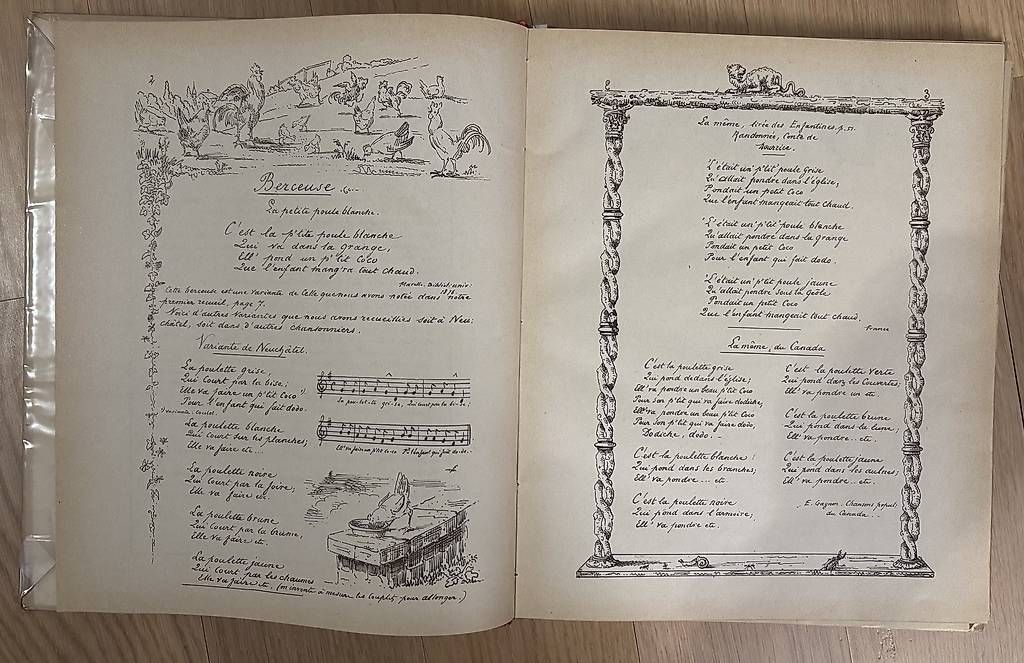 2
Berceuse
La petite poule blanche.
C'est la p'tite poule blanche
Qui va dans la grange,
Ell' pond un p'tit coco
Que l'enfant mang'ra tout chaud.
Cette berceuse est une variante de celle que nous avons notée dans notre
premier recueil, page 7.
Voici d'autres variantes que nous avons recueillies soit à Neu-
châtel, soit dans d'autres chansonniers.
Variante de Neuchâtel.
La poulette grise!
Qui court par la bise;
Elle va faire un p'tit coco
Pour l'enfant qui fait dodo.
La pou-let-te gri-se, Qui court par la bi-se.
La poulette blanche
Qui court sur les planches;
Elle va faire etc...
La poulette noire
Qui court par la foire,
Elle va faire etc.
La poulette brune
Qui court par la brume,
Elle va faire etc.
La poulette jaune
Qui court par les chaumes
Elle va faire etc. (m'invente à mesure les couplets pour allonger.)
3
La même, tirée des Enfantines, p. 51.
Randonnée, Conte de
L'était un' p'tit' poule grise
Qu'allait pondre dans l'église,
Pondait un petit coco
Que l'enfant mangeait tout chaud.
L'était un' p'tit' poule blanche
Qu'allait pondre dans la grange
Pondait un petit coco
Pour l'enfant qui fait dodo.
L'était un' p'tit' poule jaune
Qu'allait pondre sous la
Pondait un petit Coco
Que l'enfant mangeait tout chaud.
France
La même, du Canada
C'est la poulette grise
Qui pond dedans l'église;
Ell' va pondre un beau p'tit coco
Pour son p'tit qui va faire dodiche,
Ell' va pondre un beau p'tit coco
Pour son p'tit qui va faire dodo,
Dodiche, dodo.
C'est la poulette blanche!
Qui pond dans les branches;
Ell' va pondre ... etc
C'est la poulette noire
Qui pond dans l'armoire,
Ell' va pondre etc.
C'est la poulette verte
Qui pond dans les couvertes,
Ell' va pondre un etc
C'est la poulette brune
Qui pond dans la lune,
Ell' va pondre.. etc.
C'est la poulette jaune
Qui pond dans les aulnes,
Ell' va pondre.. etc.
E. Gagnon. Chansons popul.
du Canada.